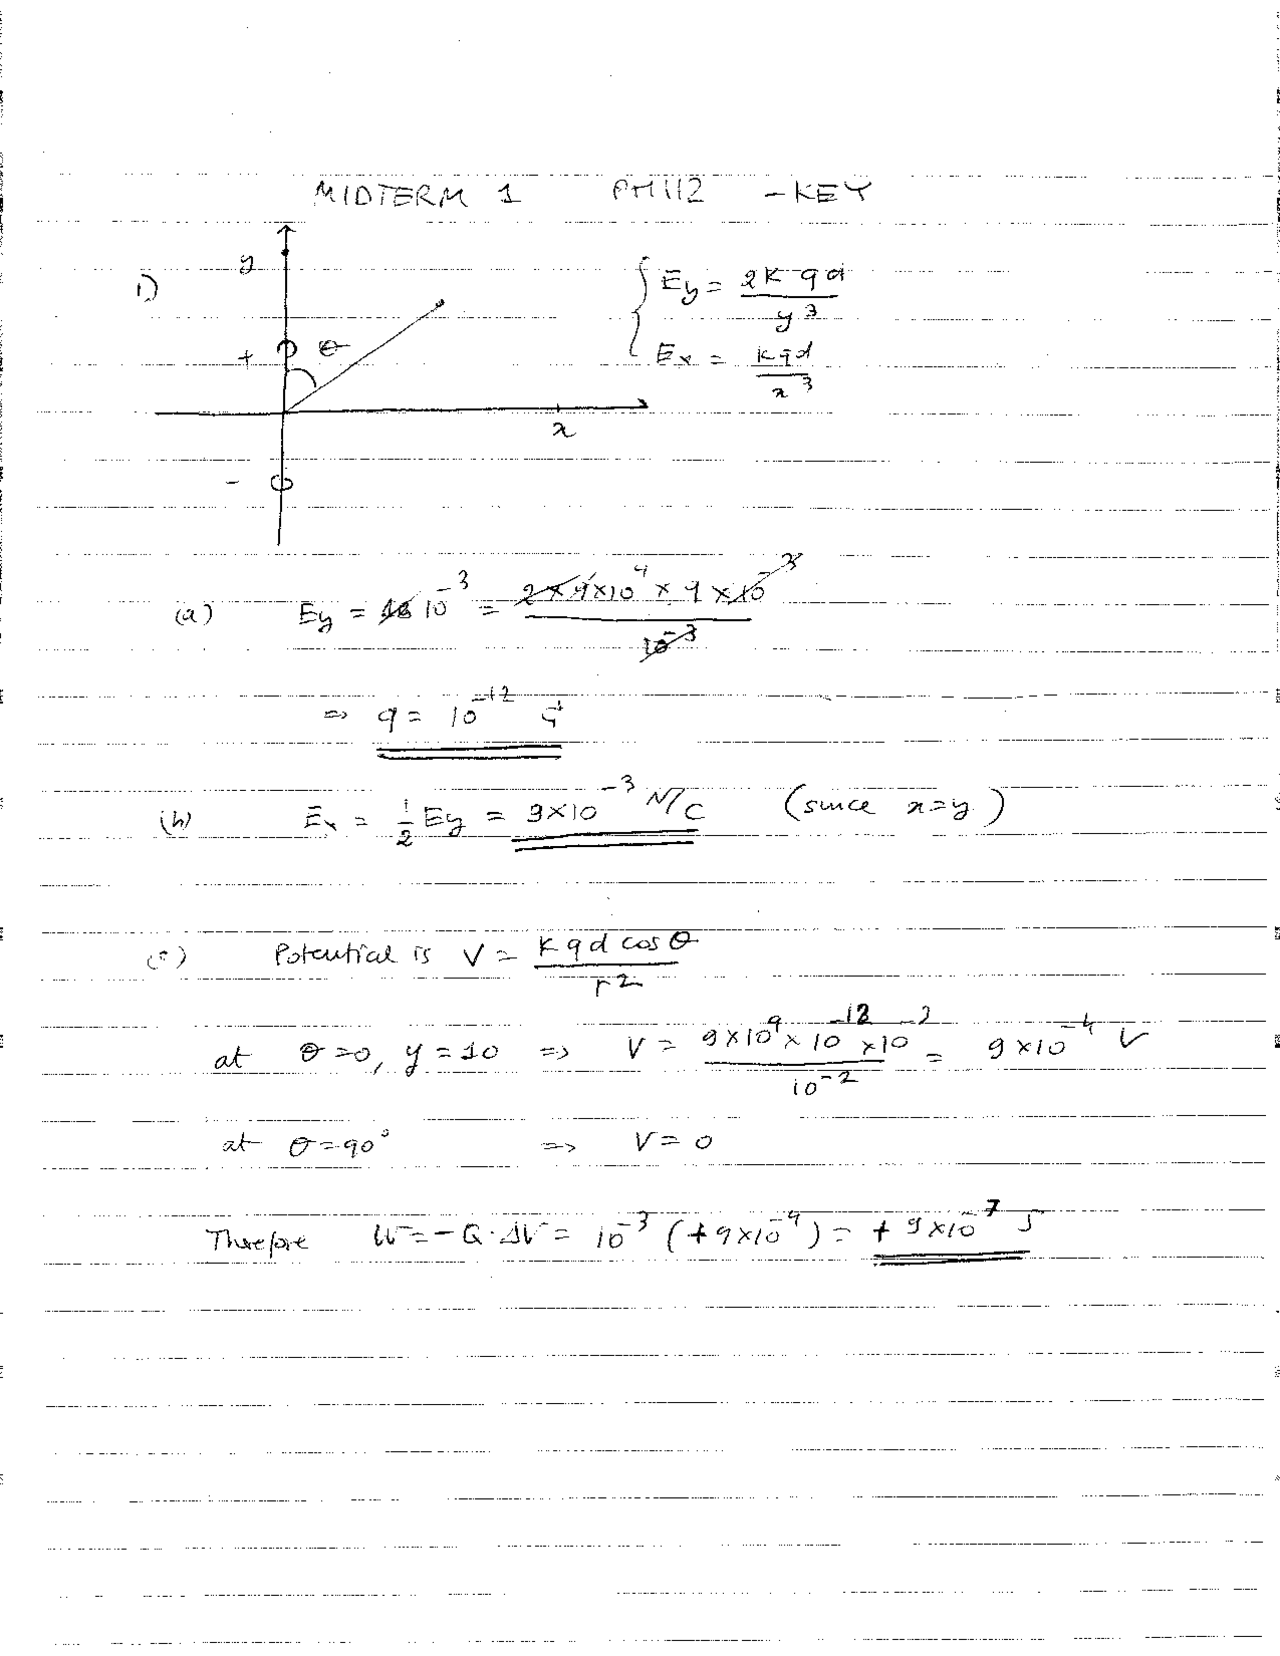 MIDTERM 1 PH112 - KEY
1)
y
+ θ
x
-
E_y = 2Kqd / y^3
E_x = kqd / x^3
(a) E_y = 18 10^-3 = 2×9×10^9 × q × 10^-3 / 10^-3
=> q = 10^-12
(b) E_x = 1/2 E_y = 9×10^-3 N/C (since x=y)
(c) Potential is V = Kqd cos θ / r^2
at θ=0, y=10 => V = 9×10^9 × 10^-12 × 10^-3 / 10^-2 = 9×10^-4 V
at θ=90° => V=0
Therefore W=-Q·ΔV= 10^-3 (+9×10^-4) = +9×10^-7 J